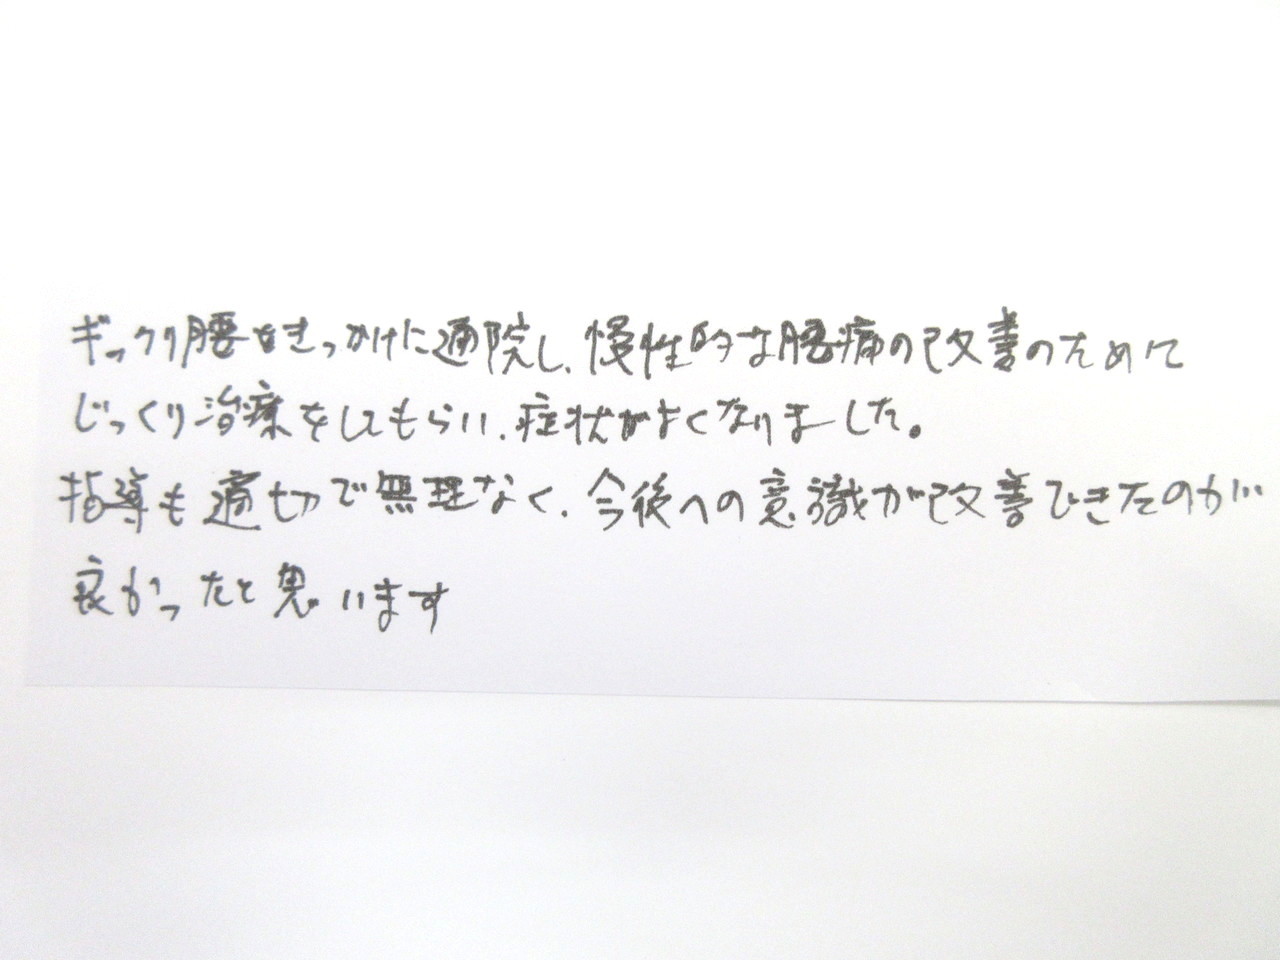 ギックリ腰をきっかけに通院し、慢性的な腰痛の改善のために
じっくり治療をしてもらい、症状がよくなりました。
指導も適切で無理なく、今後への意識が改善できたのが
良かったと思います